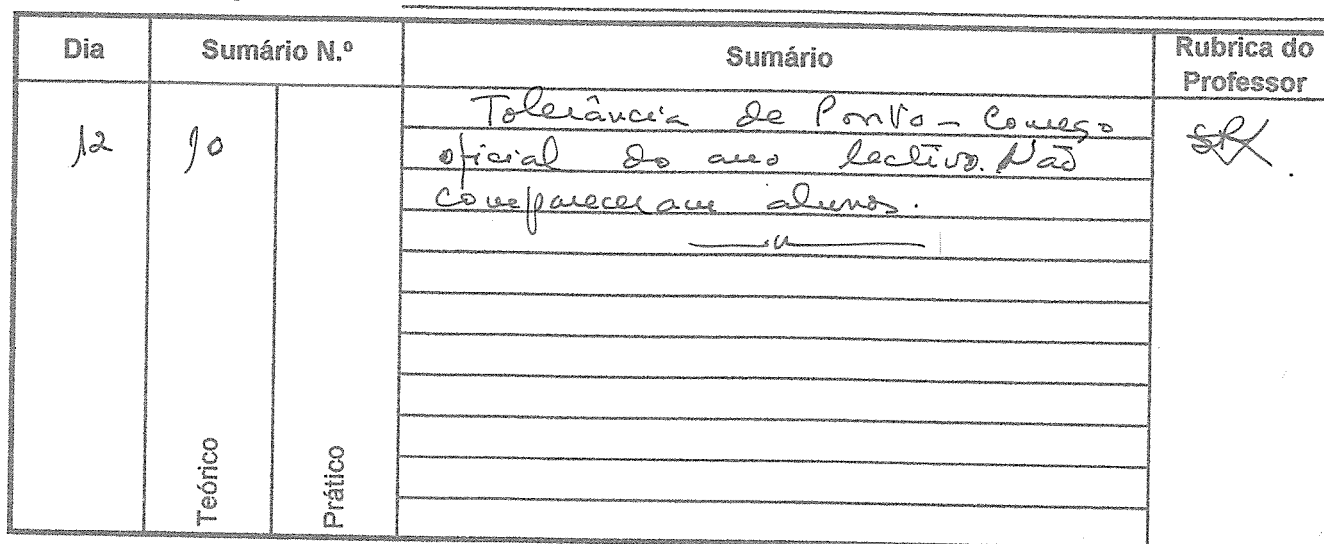 Dia Sumário N.º Sumário Rubrica do Professor
12 10 Tolerância de Ponto - Começo
oficial do ano lectivo. Não
compareceram alunos.
Teórico
Prático